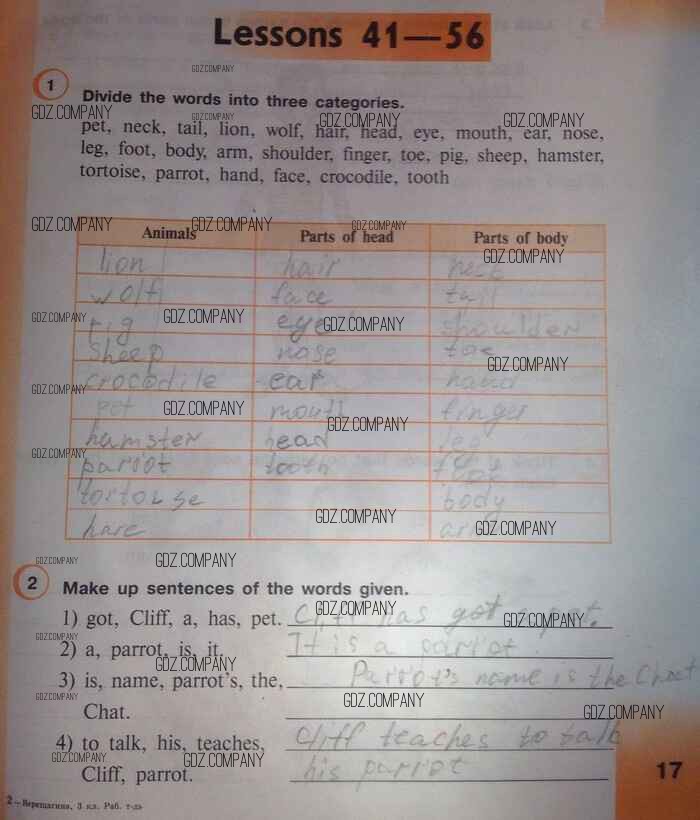 Lessons 41—56
GDZ.COMPANY
1
Divide the words into three categories.
GDZ.COMPANY GDZ.COMPANY GDZ.COMPANY GDZ.COMPANY
pet, neck, tail, lion, wolf, hair, head, eye, mouth, ear, nose,
leg, foot, body, arm, shoulder, finger, toe, pig, sheep, hamster,
tortoise, parrot, hand, face, crocodile, tooth
GDZ.COMPANY GDZ.COMPANY GDZ.COMPANY
Animals Parts of head Parts of body
GDZ.COMPANY
lion hair neck
wolf face tail
GDZ.COMPANY GDZ.COMPANY GDZ.COMPANY
pig eye shoulder
sheep nose toe
GDZ.COMPANY
crocodile ear hand
GDZ.COMPANY GDZ.COMPANY
pet mouth finger
GDZ.COMPANY
hamster head leg
GDZ.COMPANY
parrot tooth
tortoise body
GDZ.COMPANY GDZ.COMPANY
hare arm
GDZ.COMPANY GDZ.COMPANY
2
Make up sentences of the words given.
GDZ.COMPANY GDZ.COMPANY
1) got, Cliff, a, has, pet. Cliff has got a pet.
GDZ.COMPANY
2) a, parrot, is, it. It is a parrot.
GDZ.COMPANY
3) is, name, parrot's, the, Parrot's name is the Chat
GDZ.COMPANY GDZ.COMPANY GDZ.COMPANY
Chat.
4) to talk, his, teaches, Cliff teaches to talk
GDZ.COMPANY GDZ.COMPANY
Cliff, parrot. his parrot
17
2—Верещагина, 3 кл. Раб. т-дь